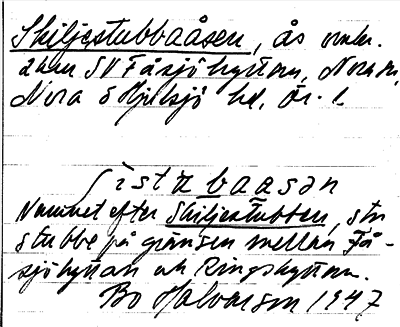 Skiljestubbaåsen, ås omkr.
2 km SV Fåsjöhyttan, Nora sn,
Nora o Hjulsjö hd, Ör. l.
ʃistɐbaasən
Namnet efter Skiljestubben, stor
stubbe på gränsen mellan Få-
sjöhyttan och Ringshyttan.
Bo Halvarson 1947